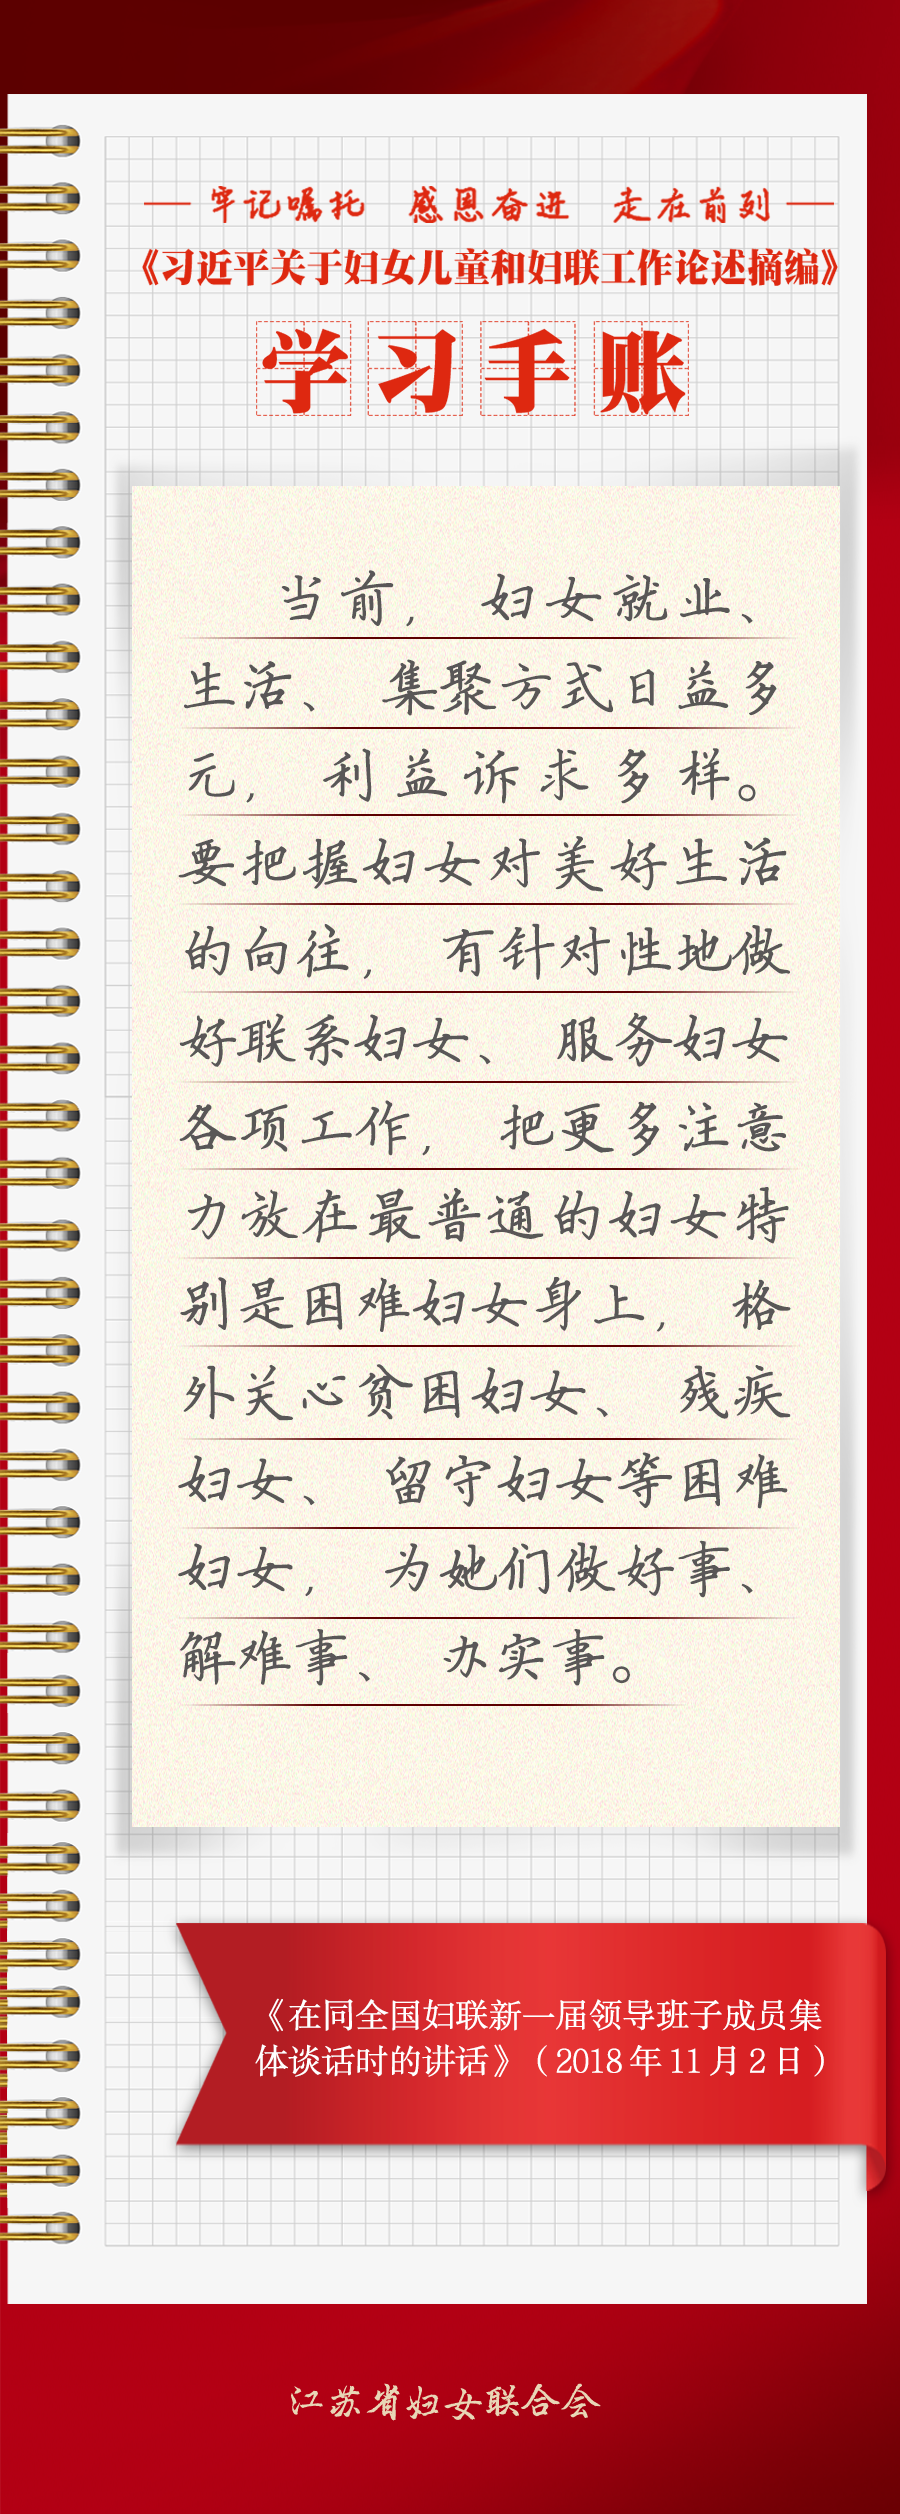 牢记嘱托 感恩奋进 走在前列
《习近平关于妇女儿童和妇联工作论述摘编》
学习手账
当前，妇女就业、
生活、集聚方式日益多
元，利益诉求多样。
要把握妇女对美好生活
的向往，有针对性地做
好联系妇女、服务妇女
各项工作，把更多注意
力放在最普通的妇女特
别是困难妇女身上，格
外关心贫困妇女、残疾
妇女、留守妇女等困难
妇女，为她们做好事、
解难事、办实事。
《在同全国妇联新一届领导班子成员集
体谈话时的讲话》（2018年11月2日）
江苏省妇女联合会